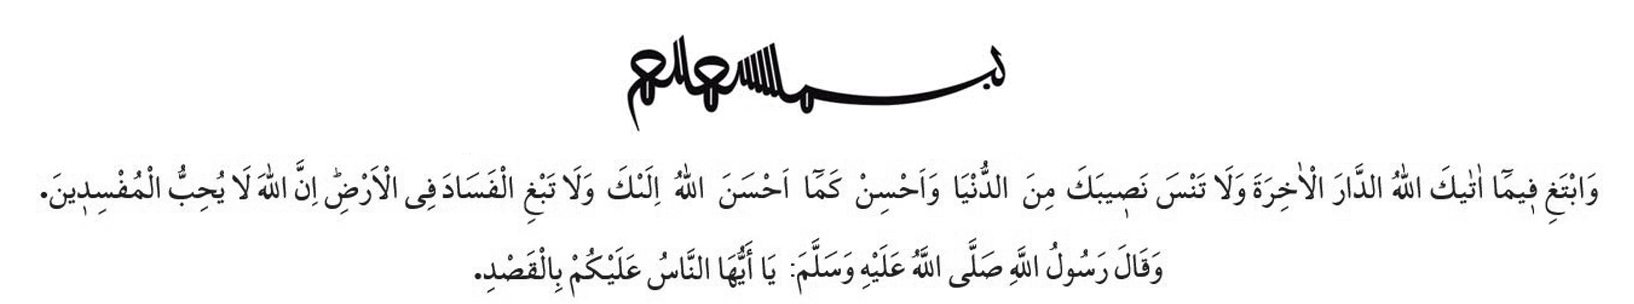 بسم الله الرحمن الرحيم
وَابْتَغِ فٖيمَٓا اٰتٰيكَ اللّٰهُ الدَّارَ الْاٰخِرَةَ وَلَا تَنْسَ نَصٖيبَكَ مِنَ الدُّنْيَا وَاَحْسِنْ كَمَٓا اَحْسَنَ اللّٰهُ اِلَيْكَ وَلَا تَبْغِ الْفَسَادَ فِى الْاَرْضِؕ اِنَّ اللّٰهَ لَا يُحِبُّ الْمُفْسِدٖينَ.
وَقَالَ رَسُولُ اللَّهِ صَلَّى اللَّهُ عَلَيْهِ وَسَلَّمَ: يَا أَيُّهَا النَّاسُ عَلَيْكُمْ بِالْقَصْدِ.